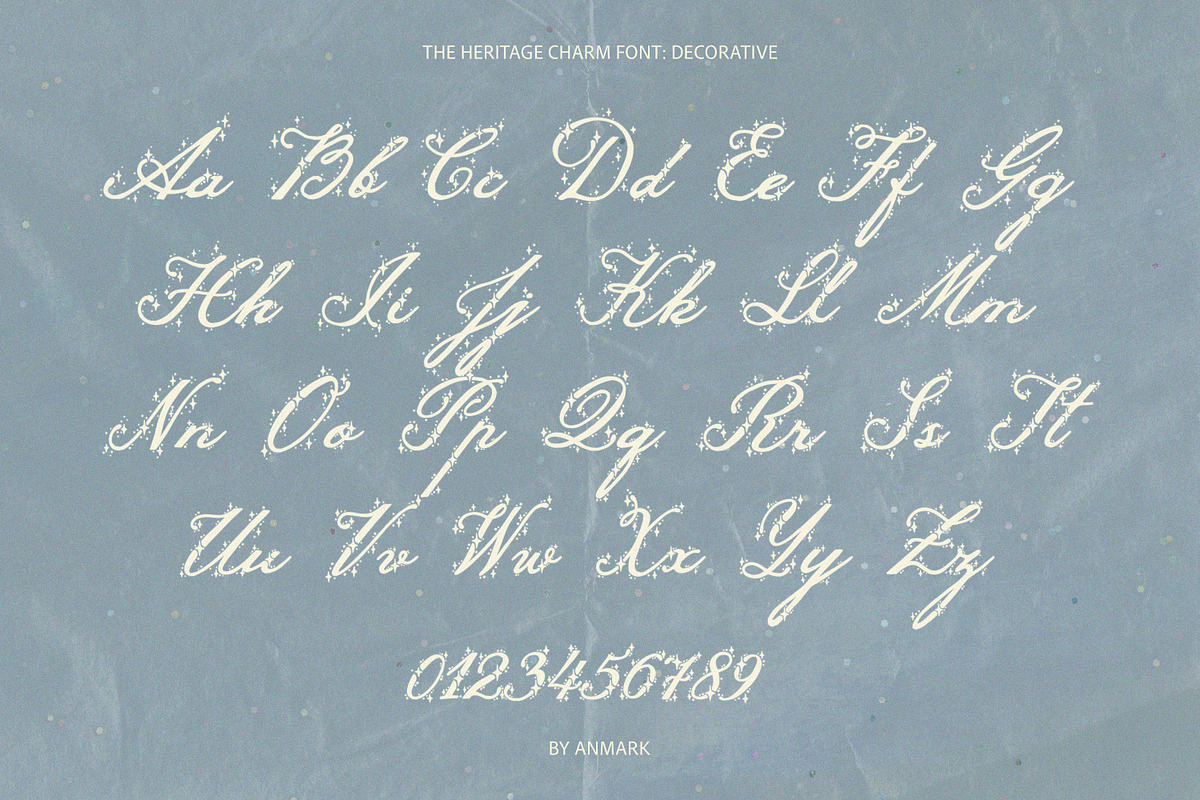 THE HERITAGE CHARM FONT: DECORATIVE
Aa Bb Cc Dd Ee Ff Gg
Hh Ii Jj Kk Ll Mm
Nn Oo Pp Qq Rr Ss Tt
Uu Vv Ww Xx Yy Zz
0123456789
BY ANMARK